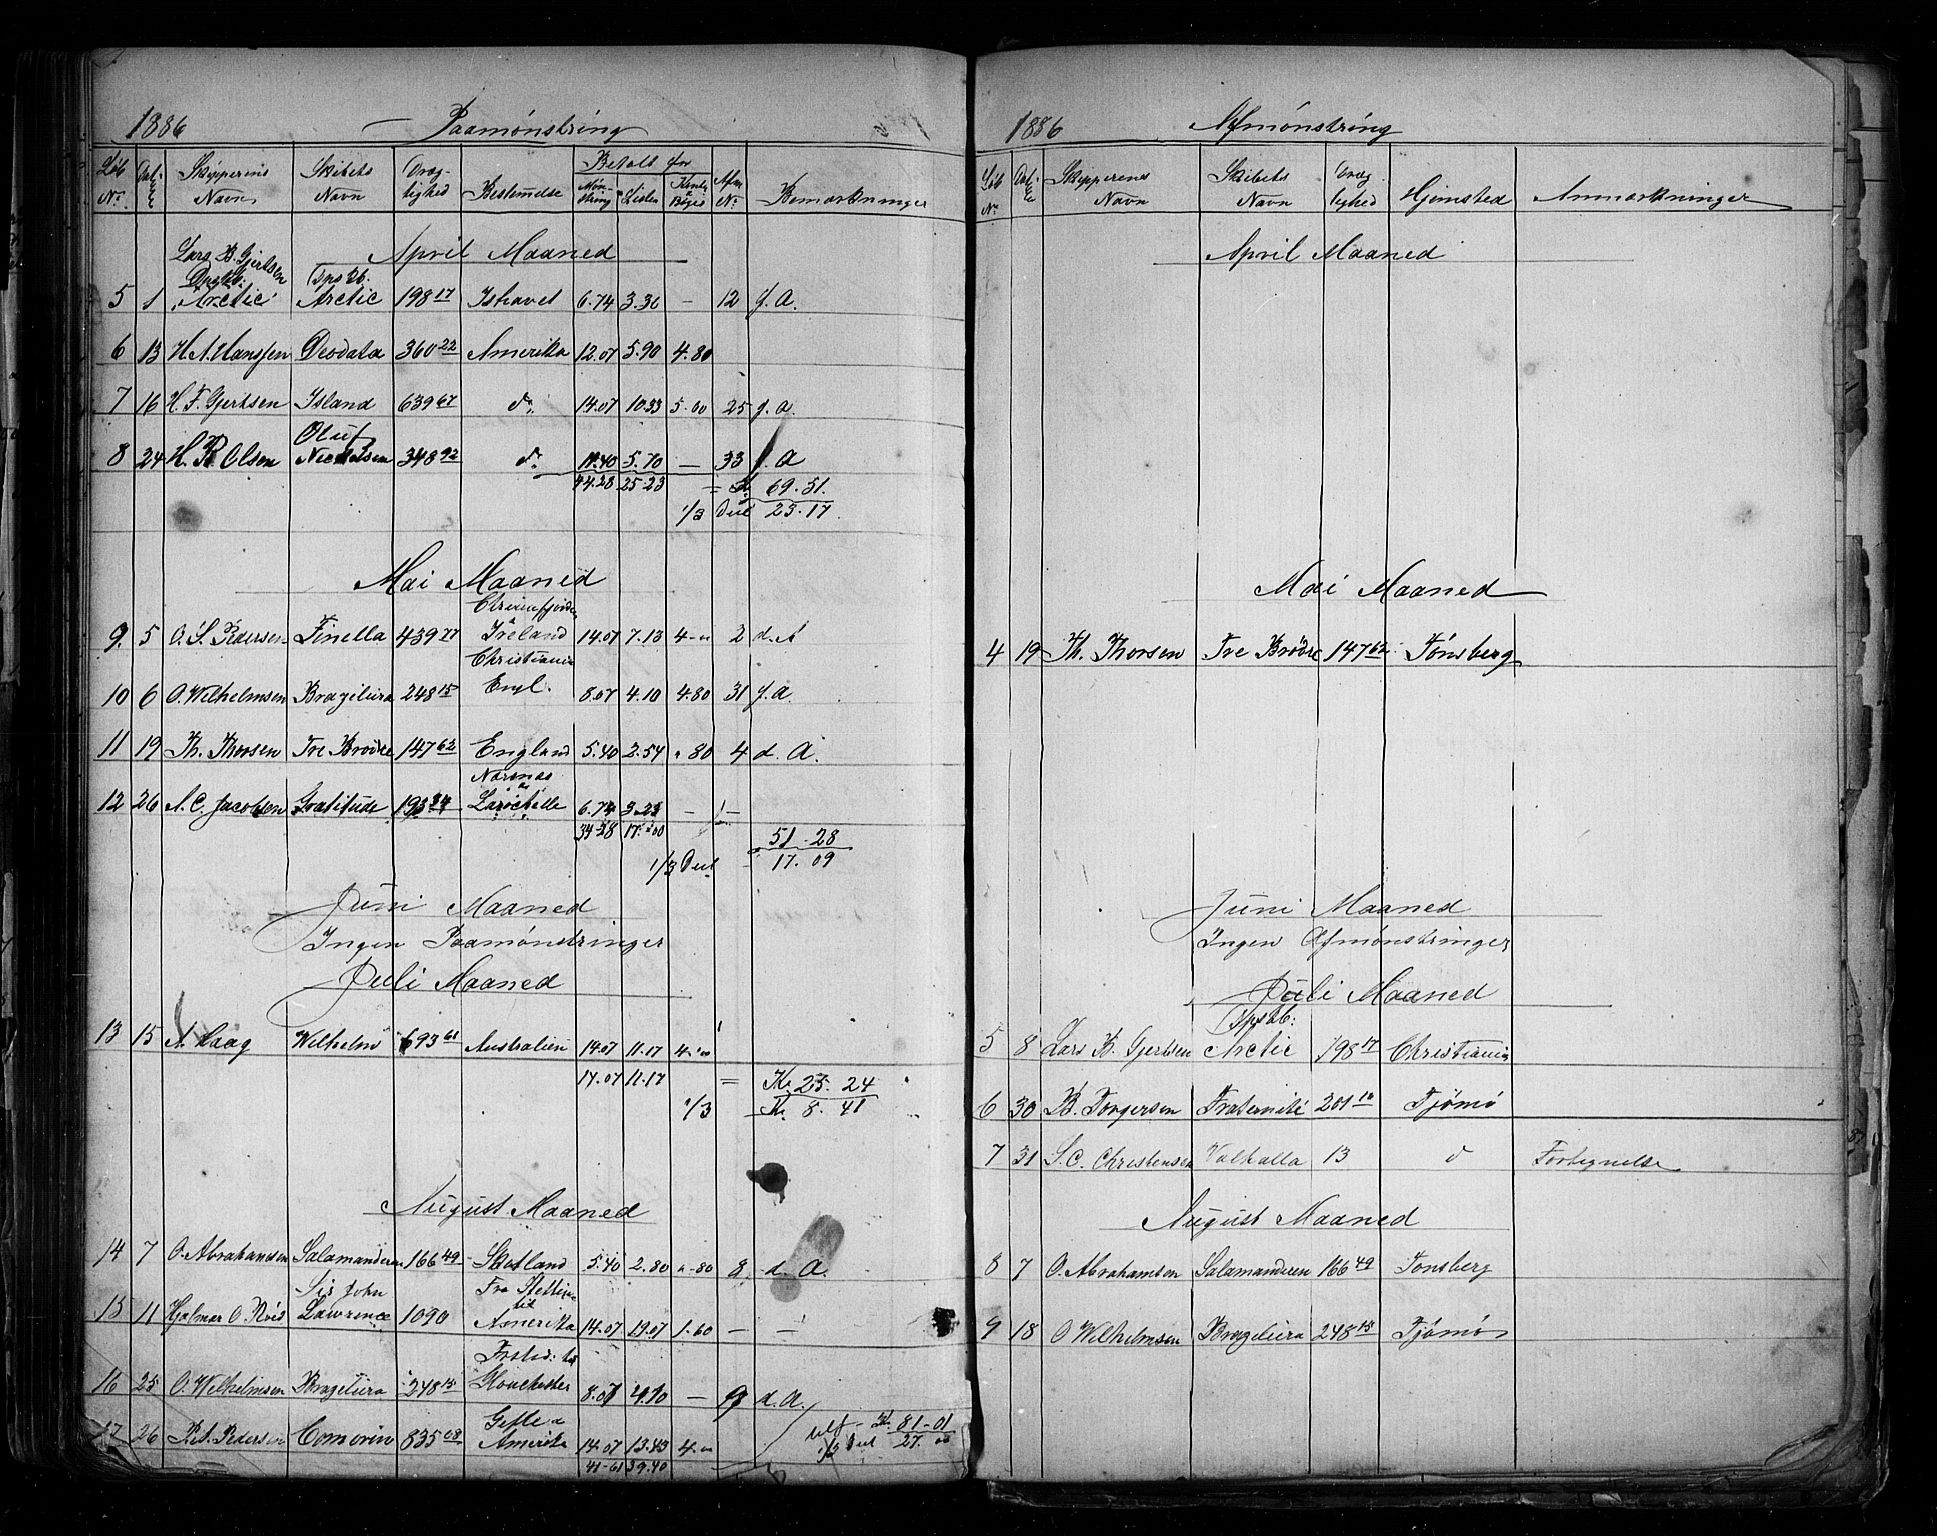 1886 Paamønstring
Løb No. Dat. Skipperens Navn Skibets Navn Dræg-tighed Bestemelse Betalt for Møn-string Listen Afm No. Bemærkninger
April Maaned
Lars B. Gjertsen
5 1 Arctic Dpskb. Arctic 198 17 Ishavet 6.74 3.36 — 12 f. A.
6 13 H. A. Hanssen Deodata 360 22 Amerika 12.07 5.90 4.80
7 16 H. F. Gjertsen Island 639 67 do. 14.07 10.33 5.60 25 f. a.
Oluf
8 24 H. R. Olsen Nickelsen 348 92 do. 11.40 5.70 — 33 f. A
44.28 25.23 = 69.51.
1/3 Deel 23.17.
Mai Maaned
9. 5 O. S. Pedersen Finella 439 77 Ireland 14.07 7.13 4-" 2 d. A
Christiania
10 6 O. Wilhelmsen Brazileira 248 15 Engl. 8.07 4.10 4.80 31 f. a.
11 19 Th. Thorsen Tre Brødre 147 62 England 5.40 2.54 " 80 4 d. A.
12 26 A. C. Jacobsen Gratitude 193 34 Larochelle 6.74 3.23 — —
34-28 17."00 51-28
1/3 Deel 17.09
Juni Maaned
Ingen Paamønstringer
Juli Maaned
13 15 A. Haag Wilhelm 693 61 Australien 14.07 11.17 4."
14.07 11.17 = Kr. 25.24
1/3 Kr. 8.41
August Maaned
14 7 O. Abrahamsen Salamanderen 166 49 Skotland 5.40 2.80 "-80 8 d. A.
Sir John Fra Stettin til
15 11 Hjalmar O. Røed Lawrence 1090 Amerika 14.07 19.07 1.60 — —
16 25 O. Wilhelmsen Brazileira 248 15 Glouchester 8.07 4.10 — 9 d. A.
Gefle a
17 26 Pedersen Comorin 835 08 Amerika 14.07 13.43 4-" Kr. 81-01
1/3 Deel 27.00
41-61 39.40
1886 Afmønstring
Løb No. Dat. Skipperens Navn Skibets Navn Dræg-tighed Hjemsted Anmærkninger
April Maaned
Mai Maaned
4 19 Th. Thorsen Tre Brødre 147 62 Tønsberg
Juni Maaned
Ingen Afmønstringer
Juli Maaned
Dpskb:
5 8 Lars B. Gjertsen Arctic 198 17 Christiania
6 30 B. Torgersen Fraternité 201 10 Tjømø
7 31 S. C. Christensen Valhalla 13 d Fortegnelse
August Maaned
8 7 O. Abrahamsen Salamanderen 166 49 Tønsberg
9 18 O Wilhelmsen Brazileira 248 15 Tjømø